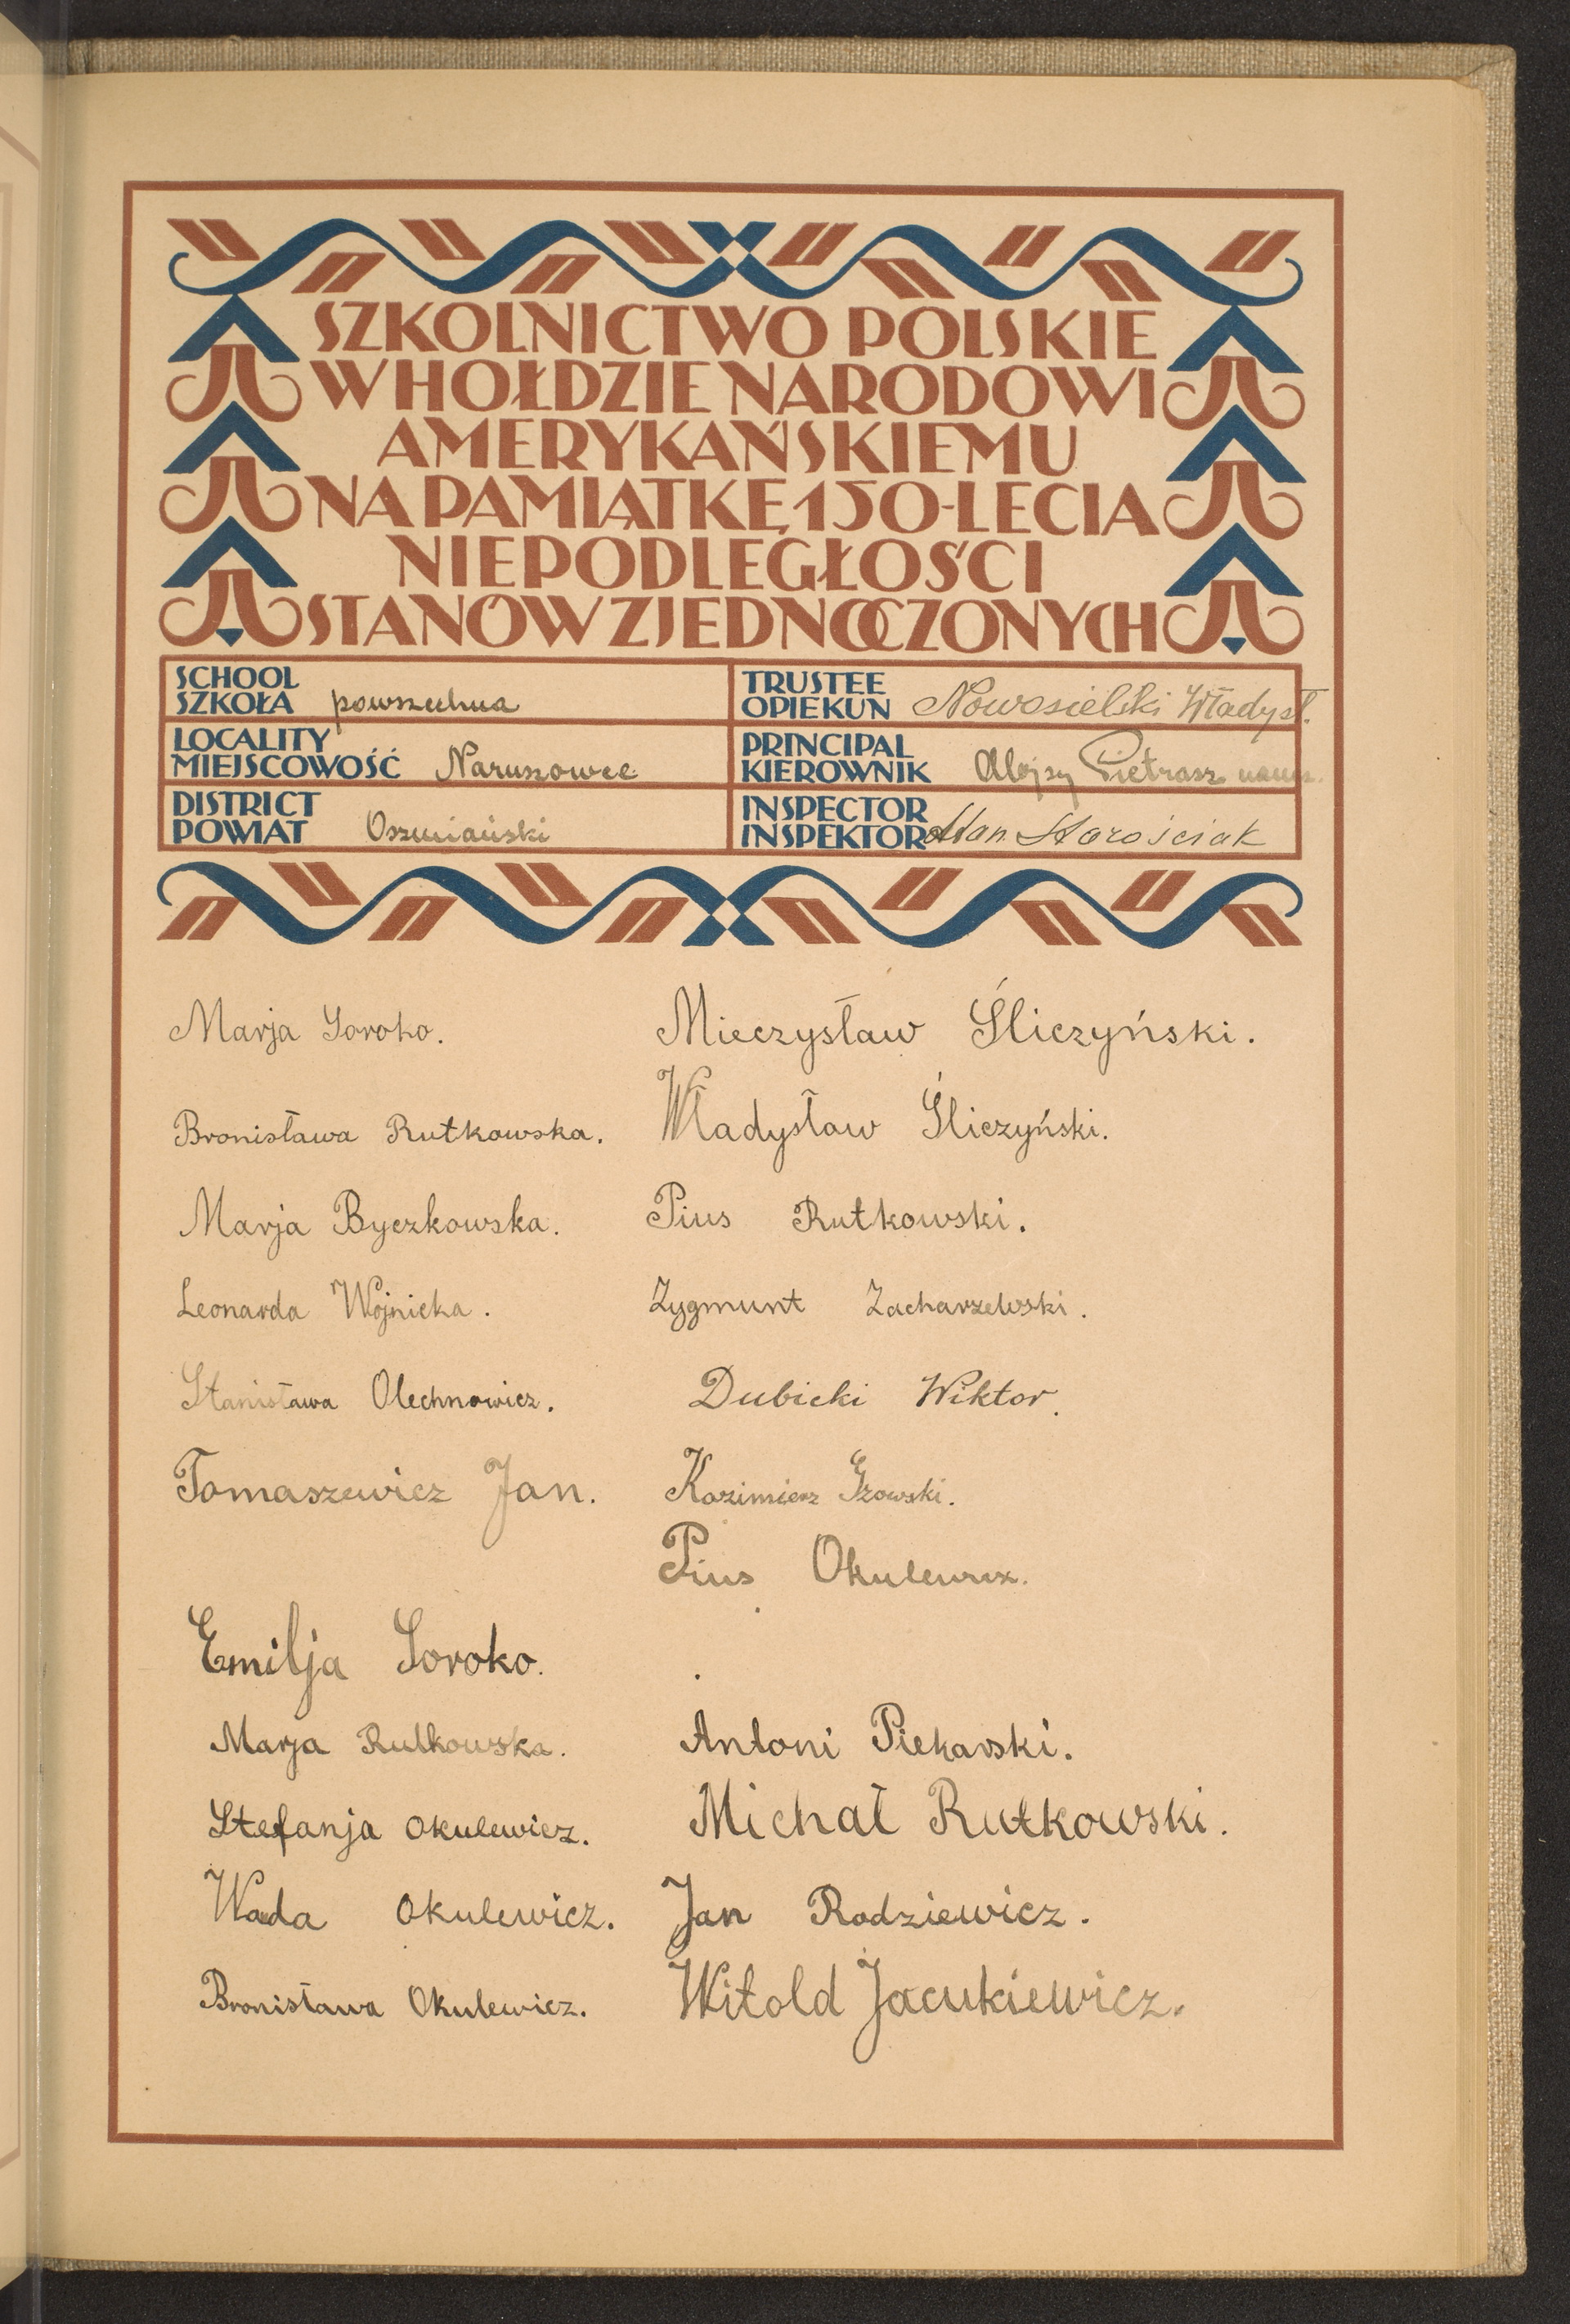 SZKOLNICTWO POLSKIE
W HOŁDZIE NARODOWI
AMERYKAŃSKIEMU
NA PAMIĄTKĘ 150-LECIA
NIEPODLEGŁOŚCI
STANÓW ZJEDNOCZONYCH
SCHOOL
SZKOŁA powszechna
TRUSTEE
OPIEKUN Nowosielski Władysł.
LOCALITY
MIEJSCOWOŚĆ Naruszowce
PRINCIPAL
KIEROWNIK Alojzy Pietrasz naucz.
DISTRICT
POWIAT Oszmiański
INSPECTOR
INSPEKTOR Stan. Starościak
Marja Soroko.
Mieczysław Śliczyński.
Bronisława Rutkowska.
Władysław Śliczyński.
Marja Byczkowska.
Pius Rutkowski.
Leonarda Wojnicka.
Zygmunt Zacharzewski.
Stanisława Olechnowicz.
Dubicki Wiktor.
Tomaszewicz Jan.
Kazimierz
Pius Okulewicz.
Emilja Soroko.
Marja Rutkowska.
Antoni Piekarski.
Stefanja Okulewicz.
Michał Rutkowski.
Wada Okulewicz.
Jan Rodziewicz.
Bronisława Okulewicz.
Witold Jacukiewicz.